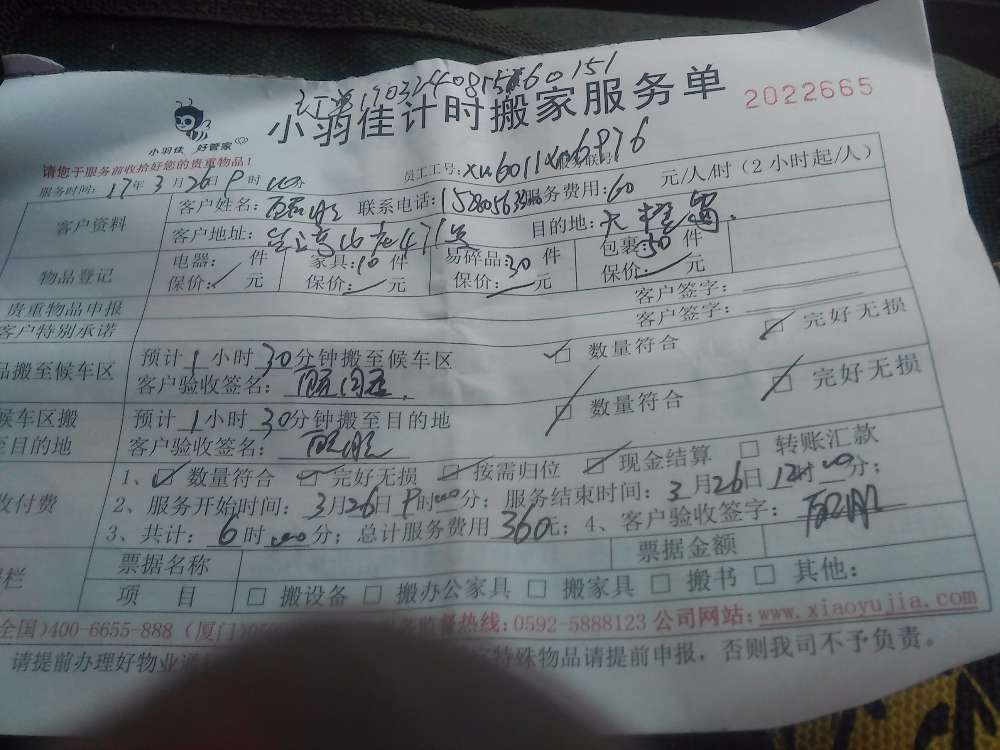 订单190324408151660151
小羽佳计时搬家服务单 2022665
小羽佳 好管家
请您于服务前收拾好您的贵重物品!
员工号:xm6011 xm6976
服务时间: 17年3月26日9时00分
客户资料 客户姓名: 联系电话: 服务费用:60 元/人/时(2小时起/人)
客户地址: 目的地:
物品登记 电器: 件 家具:10件 易碎品:30件 包裹:30件
保价:／元 保价:／元 保价:／元 保价:／元
贵重物品申报 客户签字:
客户特别承诺 客户签字:
品搬至候车区 预计1小时30分钟搬至候车区 ☑ 数量符合 ☑ 完好无损
客户验收签名:
候车区搬至目的地 预计1小时30分钟搬至目的地 ☑ 数量符合 ☑ 完好无损
客户验收签名:
收付费 1、☑ 数量符合 ☑ 完好无损 ☑ 按需归位 ☑ 现金结算 □ 转账汇款
2、服务开始时间: 3月26日9时00分; 服务结束时间: 3月26日12时00分;
3、共计: 6时00分; 总计服务费用360元; 4、客户验收签字:
票据名称 票据金额
栏 项 目 □ 搬设备 □ 搬办公家具 □ 搬家具 □ 搬书 □ 其他:
全国)400-6655-888 (厦门)059 监督热线:0592-5888123 公司网站:www.xiaoyujia.com
请提前办理好物业 特殊物品请提前申报，否则我司不予负责。